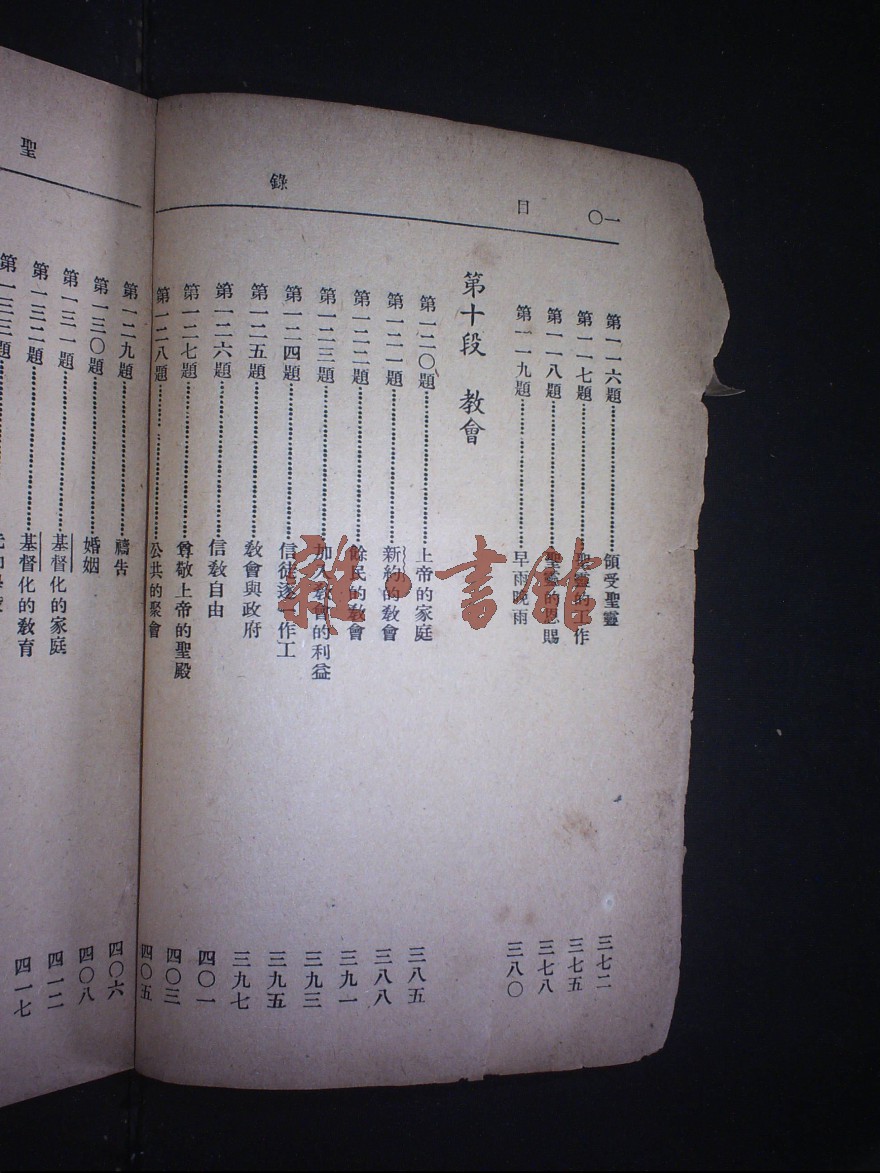 一〇 目 錄
第一一六題 領受聖靈 三七二
第一一七題 聖靈的工作 三七五
第一一八題 聖靈的恩賜 三七八
第一一九題 早雨晚雨 三八〇
第十段 教會
第一二〇題 上帝的家庭 三八五
第一二一題 新約的教會 三八八
第一二二題 餘民的教會 三九一
第一二三題 加入教會的利益 三九三
第一二四題 信徒逐一作工 三九五
第一二五題 教會與政府 三九七
第一二六題 信教自由 四〇一
第一二七題 尊敬上帝的聖殿 四〇三
第一二八題 公共的聚會 四〇五
聖
第一二九題 禱告 四〇六
第一三〇題 婚姻 四〇八
第一三一題 基督化的家庭 四一二
第一三二題 基督化的教育 四一七
第一三三題
雜·書館